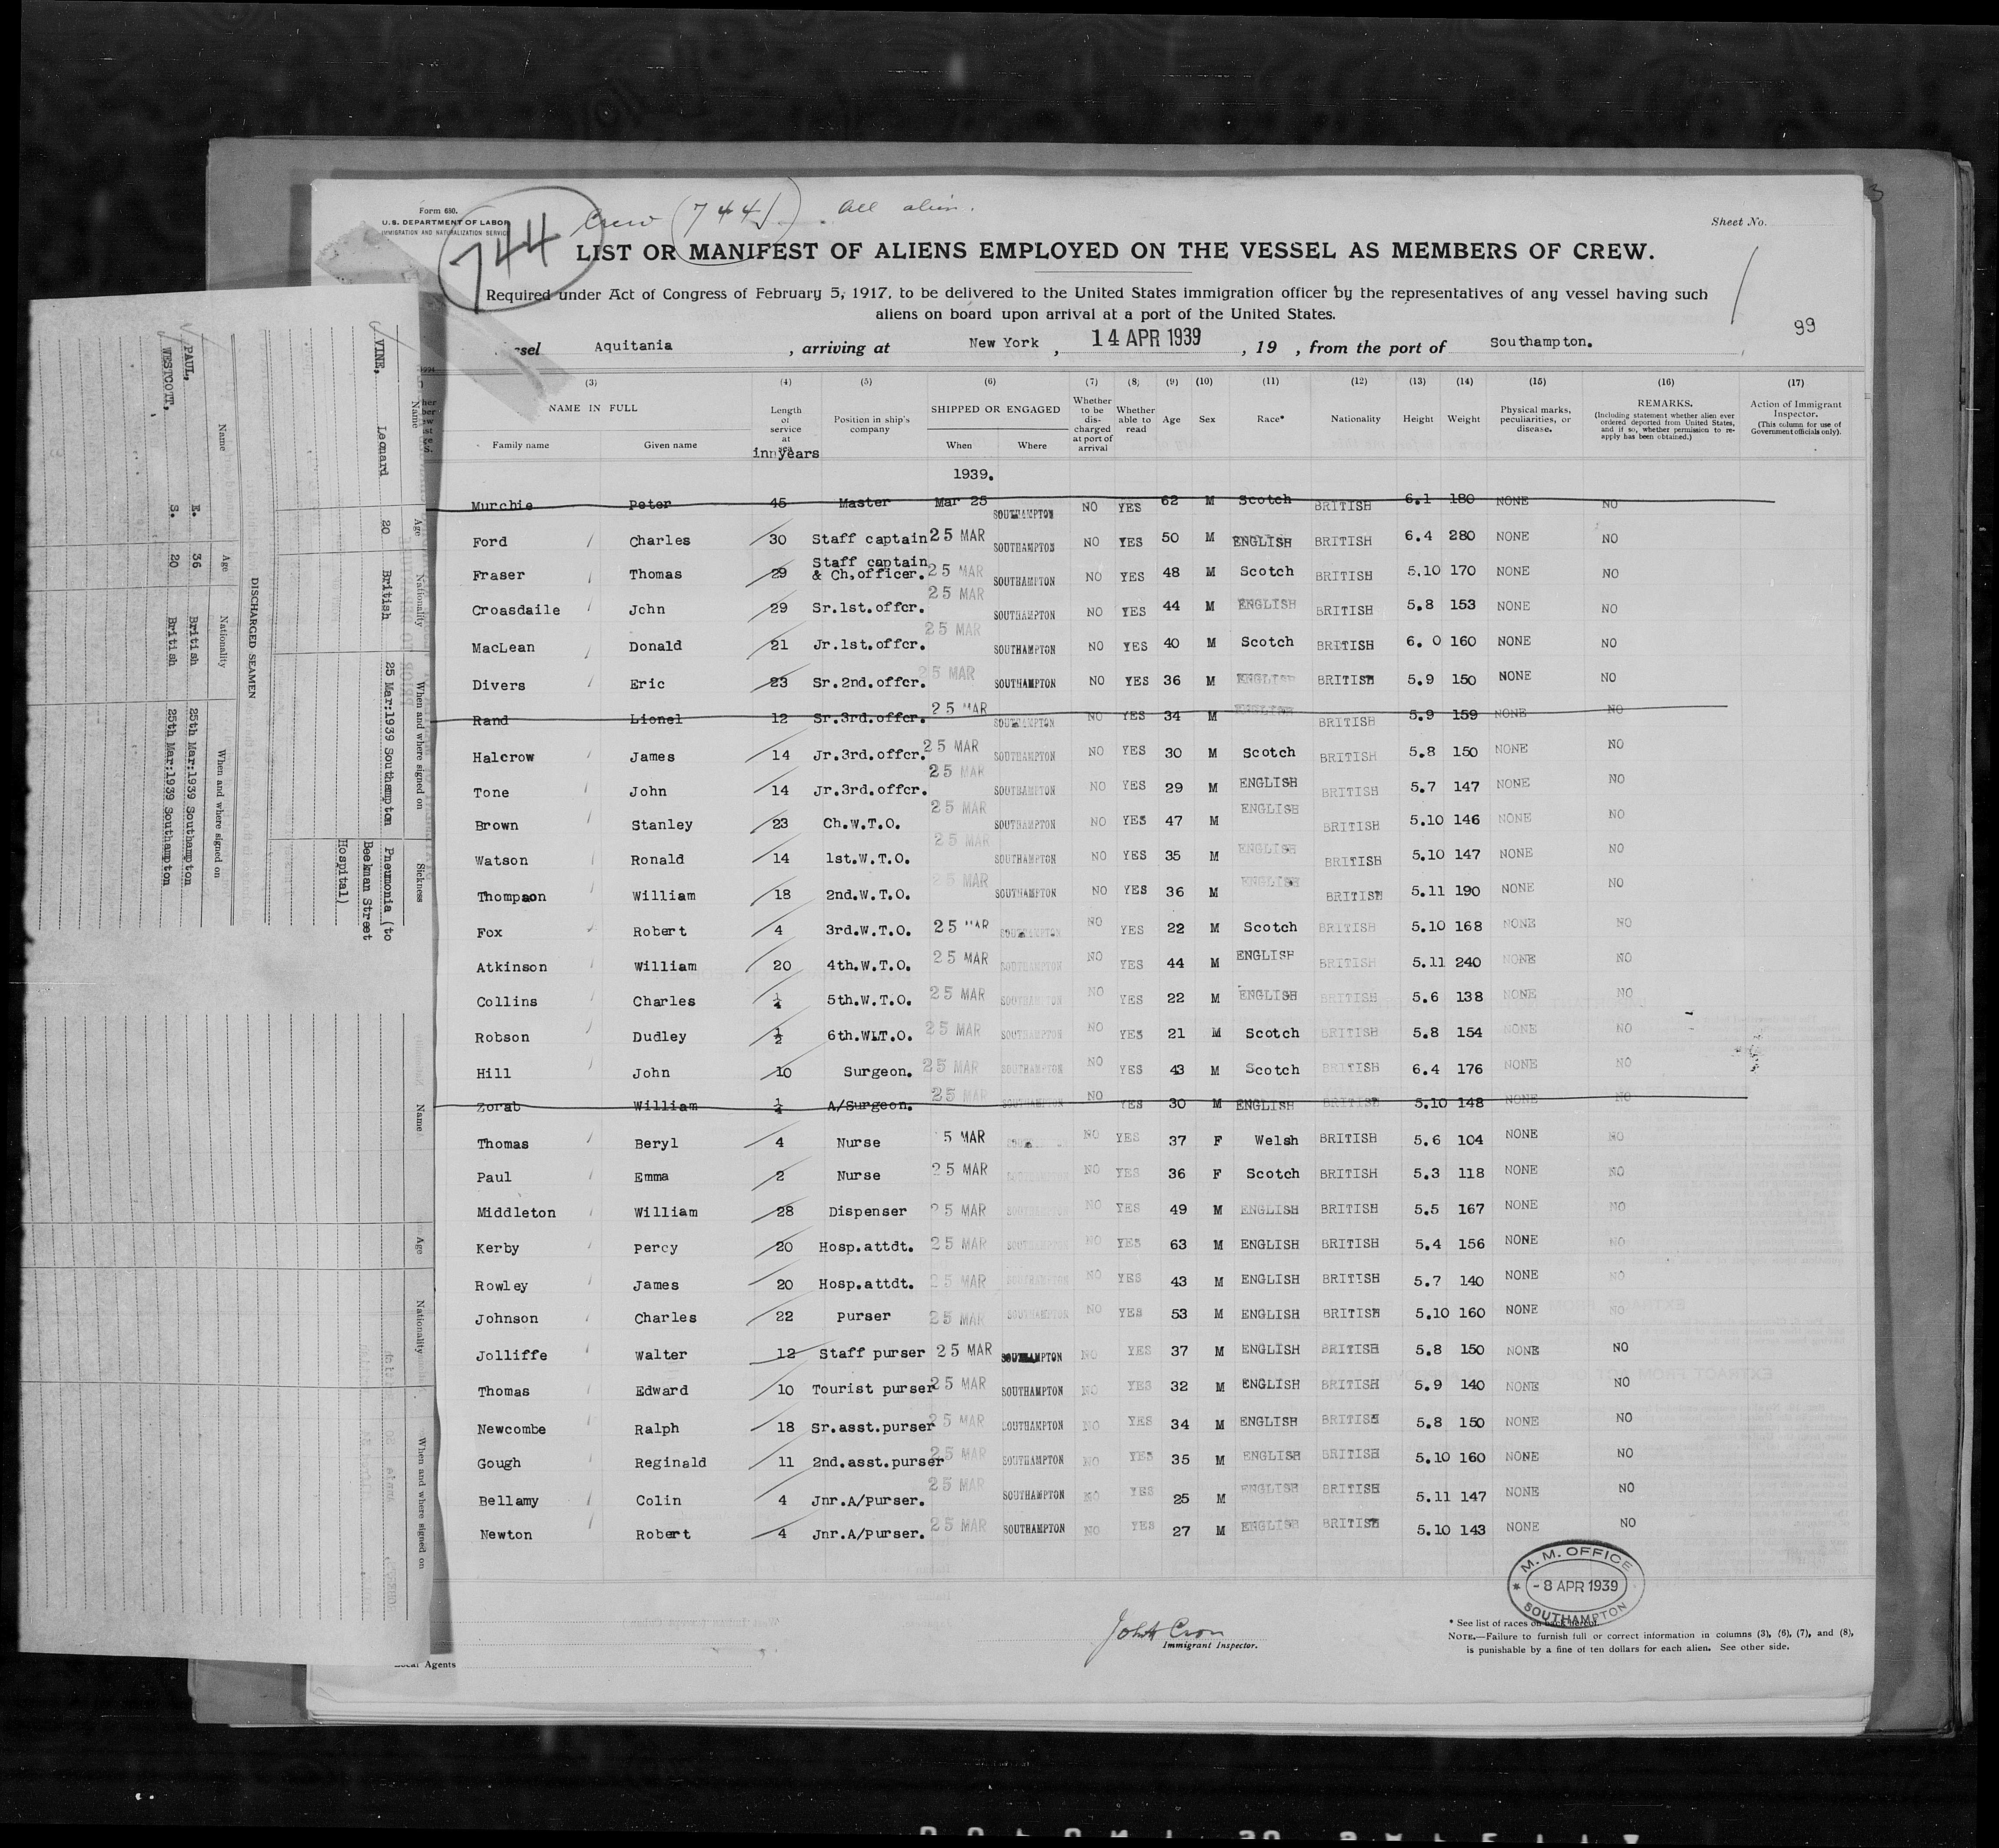 Form 680.
U.S. DEPARTMENT OF LABOR
IMMIGRATION AND NATURALIZATION SERVICE
744
Crew (744) . All alien.
Sheet No.
LIST OR MANIFEST OF ALIENS EMPLOYED ON THE VESSEL AS MEMBERS OF CREW.
Required under Act of Congress of February 5, 1917, to be delivered to the United States immigration officer by the representatives of any vessel having such
aliens on board upon arrival at a port of the United States.
99
Aquitania , arriving at New York , 14 APR 1939 , 19 , from the port of Southampton.
(3) (4) (5) (6) (7) (8) (9) (10) (11) (12) (13) (14) (15) (16) (17)
NAME IN FULL
Family name Given name
Length of service at
in years
Position in ship's company
SHIPPED OR ENGAGED
When Where
Whether to be discharged at port of arrival
Whether able to read
Age Sex Race* Nationality Height Weight
Physical marks, peculiarities, or disease.
REMARKS.
(Including statement whether alien ever ordered deported from United States, and if so, whether permission to reapply has been obtained.)
Action of Immigrant Inspector.
(This column for use of Government officials only).
1939.
Murchie Peter 45 Master Mar 25 SOUTHAMPTON NO YES 62 M Scotch BRITISH 6.1 180 NONE NO
Ford Charles 30 Staff captain 25 MAR SOUTHAMPTON NO YES 50 M ENGLISH BRITISH 6.4 280 NONE NO
Fraser Thomas 29 Staff captain & Ch.officer. 25 MAR SOUTHAMPTON NO YES 48 M Scotch BRITISH 5.10 170 NONE NO
Croasdaile John 29 Sr.1st.offcr. 25 MAR SOUTHAMPTON NO YES 44 M ENGLISH BRITISH 5.8 153 NONE NO
MacLean Donald 21 Jr.1st.offcr. 25 MAR SOUTHAMPTON NO YES 40 M Scotch BRITISH 6. 0 160 NONE NO
Divers Eric 23 Sr.2nd.offcr. 25 MAR SOUTHAMPTON NO YES 36 M ENGLISH BRITISH 5.9 150 NONE NO
Rand Lionel 12 Sr.3rd.offcr. 25 MAR SOUTHAMPTON NO YES 34 M ENGLISH BRITISH 5.9 159 NONE NO
Halcrow James 14 Jr.3rd.offcr. 25 MAR SOUTHAMPTON NO YES 30 M Scotch BRITISH 5.8 150 NONE NO
Tone John 14 Jr.3rd.offcr. 25 MAR SOUTHAMPTON NO YES 29 M ENGLISH BRITISH 5.7 147 NONE NO
Brown Stanley 23 Ch.W.T.O. 25 MAR SOUTHAMPTON NO YES 47 M ENGLISH BRITISH 5.10 146 NONE NO
Watson Ronald 14 1st.W.T.O. 25 MAR SOUTHAMPTON NO YES 35 M ENGLISH BRITISH 5.10 147 NONE NO
Thompson William 18 2nd.W.T.O. 25 MAR SOUTHAMPTON NO YES 36 M ENGLISH BRITISH 5.11 190 NONE NO
Fox Robert 4 3rd.W.T.O. 25 MAR SOUTHAMPTON NO YES 22 M Scotch BRITISH 5.10 168 NONE NO
Atkinson William 20 4th.W.T.O. 25 MAR SOUTHAMPTON NO YES 44 M ENGLISH BRITISH 5.11 240 NONE NO
Collins Charles ¼ 5th.W.T.O. 25 MAR SOUTHAMPTON NO YES 22 M ENGLISH BRITISH 5.6 138 NONE NO
Robson Dudley ½ 6th.W.T.O. 25 MAR SOUTHAMPTON NO YES 21 M Scotch BRITISH 5.8 154 NONE NO
Hill John 10 Surgeon. 25 MAR SOUTHAMPTON NO YES 43 M Scotch BRITISH 6.4 176 NONE NO
Zorab William ¼ A/Surgeon. 25 MAR SOUTHAMPTON NO YES 30 M ENGLISH BRITISH 5.10 148 NONE NO
Thomas Beryl 4 Nurse 5 MAR NO YES 37 F Welsh BRITISH 5.6 104 NONE NO
Paul Emma 2 Nurse 25 MAR SOUTHAMPTON NO YES 36 F Scotch BRITISH 5.3 118 NONE NO
Middleton William 28 Dispenser 25 MAR SOUTHAMPTON NO YES 49 M ENGLISH BRITISH 5.5 167 NONE NO
Kerby Percy 20 Hosp.attdt. 25 MAR SOUTHAMPTON NO YES 63 M ENGLISH BRITISH 5.4 156 NONE NO
Rowley James 20 Hosp.attdt. 25 MAR SOUTHAMPTON NO YES 43 M ENGLISH BRITISH 5.7 140 NONE NO
Johnson Charles 22 Purser 25 MAR SOUTHAMPTON NO YES 53 M ENGLISH BRITISH 5.10 160 NONE NO
Jolliffe Walter 12 Staff purser 25 MAR SOUTHAMPTON NO YES 37 M ENGLISH BRITISH 5.8 150 NONE NO
Thomas Edward 10 Tourist purser 25 MAR SOUTHAMPTON NO YES 32 M ENGLISH BRITISH 5.9 140 NONE NO
Newcombe Ralph 18 Sr.asst.purser 25 MAR SOUTHAMPTON NO YES 34 M ENGLISH BRITISH 5.8 150 NONE NO
Gough Reginald 11 2nd.asst.purser 25 MAR SOUTHAMPTON NO YES 35 M ENGLISH BRITISH 5.10 160 NONE NO
Bellamy Colin 4 Jnr.A/Purser. 25 MAR SOUTHAMPTON NO YES 25 M ENGLISH BRITISH 5.11 147 NONE NO
Newton Robert 4 Jnr.A/Purser. 25 MAR SOUTHAMPTON NO YES 27 M ENGLISH BRITISH 5.10 143 NONE NO
M. M. OFFICE
- 8 APR 1939
SOUTHAMPTON
Immigrant Inspector.
* See list of races on back hereof.
NOTE.—Failure to furnish full or correct information in columns (3), (6), (7), and (8),
is punishable by a fine of ten dollars for each alien. See other side.
Agents
Name Age Nationality When and where signed on Sickness
VINE, Leonard 20 British 25 Mar:1939 Southampton Pneumonia (to
Beekman Street
Hospital)
DISCHARGED SEAMEN
Name Age Nationality When and where signed on
PAUL, E. 36 British 25th Mar:1939 Southampton
WESTCOTT, S. 20 British 25th Mar:1939 Southampton
Name Age Nationality When and where signed on